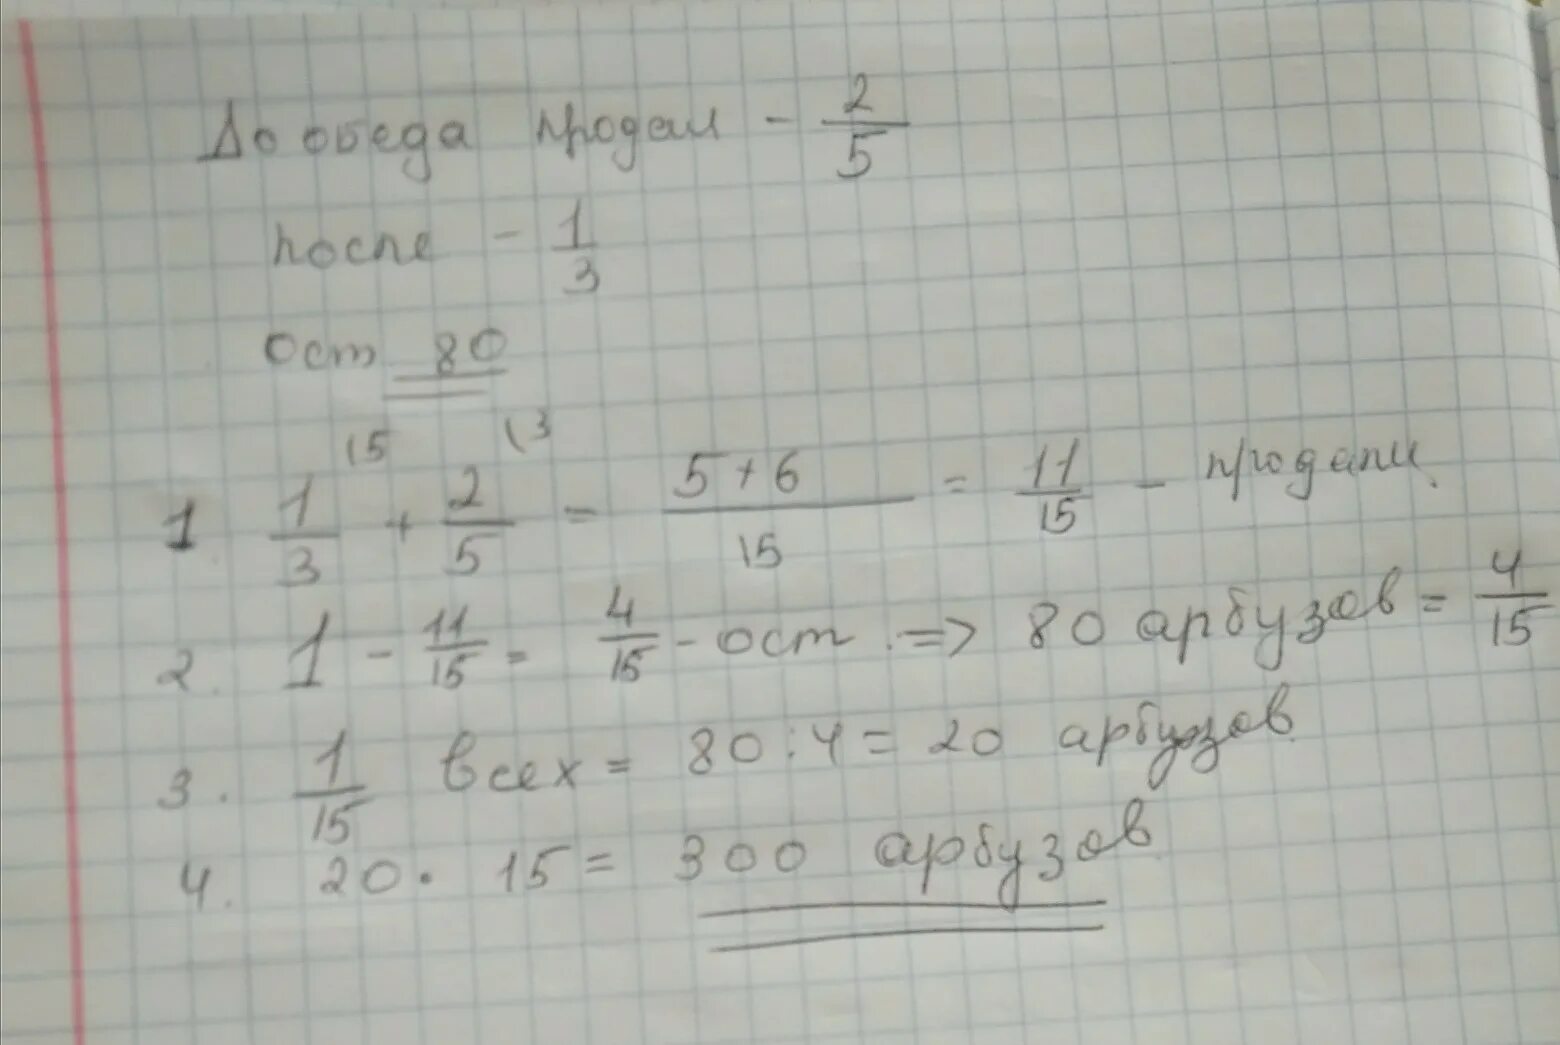 До обеда продали - 2/5
после - 1/3
ост 80
1. 1/3 (5 + 2/5 (3 = (5+6)/15 = 11/15 - продали.
2. 1 - 11/15 = 4/15 - ост. => 80 арбузов = 4/15
3. 1/15 всех = 80:4 = 20 арбузов
4. 20 · 15 = 300 арбузов